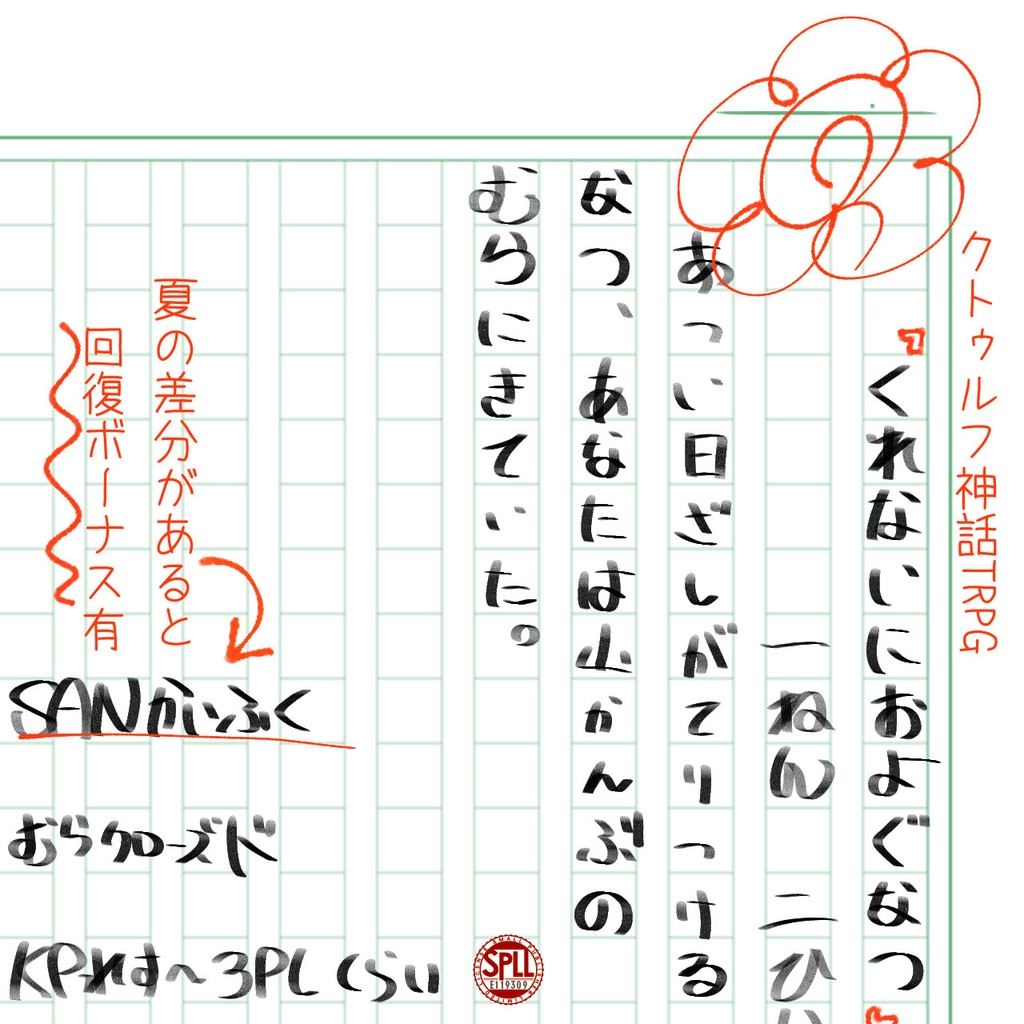 クトゥルフ神話TRPG
くれないにおよぐなつ
一ねん 二ひ
あっい日ざしがてりつける
なつ、あなたは山かんぶの
むらにきていた。
夏の差分があると
回復ボーナス有
SANかいふく
むらクローズド
KPれす〜3PLくらい
SPLL
E119309